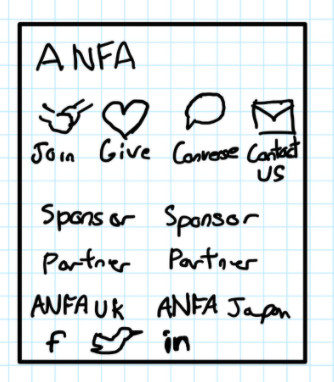 ANFA
Join Give Converse Contact US
Sponsor Sponsor
Partner Partner
ANFA UK ANFA Japan
f in